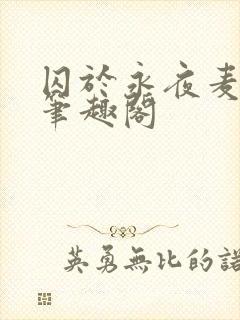 囚於永夜麦
筆趣閣
英勇無比的諾